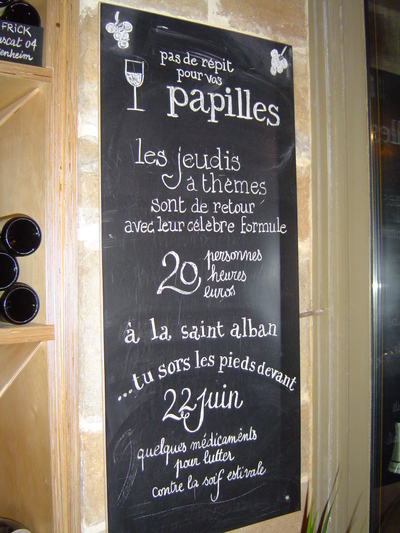 FRICK
uscat 04
enheim
pas de répit
pour vos
papilles
les jeudis
à thèmes
sont de retour
avec leur célèbre formule
20 personnes
heures
euros
à la saint alban
...tu sors les pieds devant
22 juin
quelques médicaments
pour lutter
contre la soif estivale